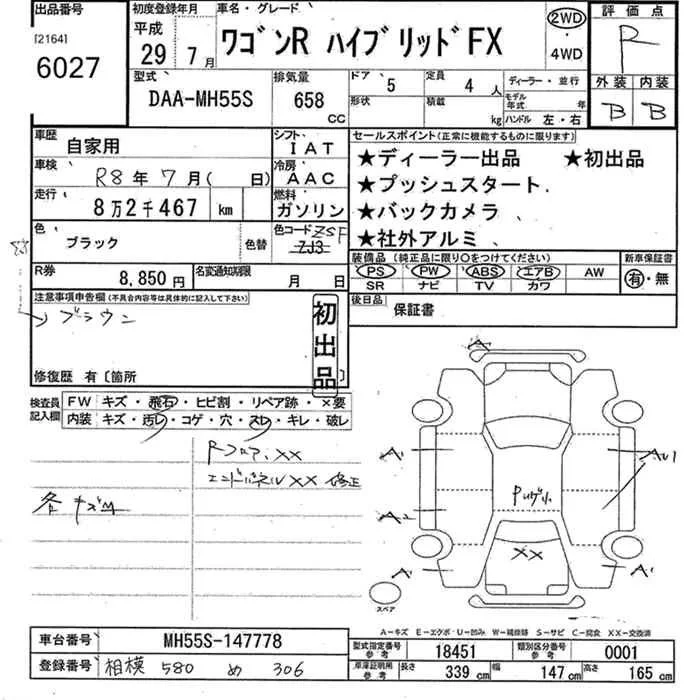 出品番号 初度登録年月 車名・グレード 評価点
[2164] 平成 2WD R
6027 29年 7月 ワゴンR ハイブリッドFX 4WD
型式 排気量 ドア 5 定員 4人 ディーラー・並行 外装 内装
DAA-MH55S 658 CC 形状 積載 kg モデル年式 年 B B
ハンドル 左・右
車歴 自家用 シフト IAT セールスポイント(正常に機能するものに限ります)
車検 R8年 7月( 日) 冷房 AAC ★ディーラー出品 ★初出品
走行 8万2千467 km 燃料 ガソリン ★プッシュスタート
★バックカメラ
色 ブラック 色替 色コード ZSF ZJ3 ★社外アルミ
装備品(純正品に限り○をつけてください) 新車保証書
R券 8,850円 名変通知期限 月 日 PS PW ABS エアB AW 有・無
SR ナビ TV カワ
注意事項申告欄(不具合内容等は具体的に記入して下さい) 後日品 保証書
ブラウン
初出品
修復歴 有〔箇所
検査員記入欄 FW キズ・飛石・ヒビ割・リペア跡・×要
内装 キズ・汚レ・コゲ・穴・スレ・キレ・破レ
Rフロア、XX
エンドパネルXX 修正
各キズ
A
A1
A2
A
A
XX
スペア
A−キズ E−エクボ・U−凹み W−補修跡 S−サビ C−腐食 XX−交換済
車台番号 MH55S-147778 型式指定番号 参考 18451 類別区分番号 参考 0001
登録番号 相模 580 め 306 車庫証明用 参考 長さ 339 cm 幅 147 cm 高さ 165 cm